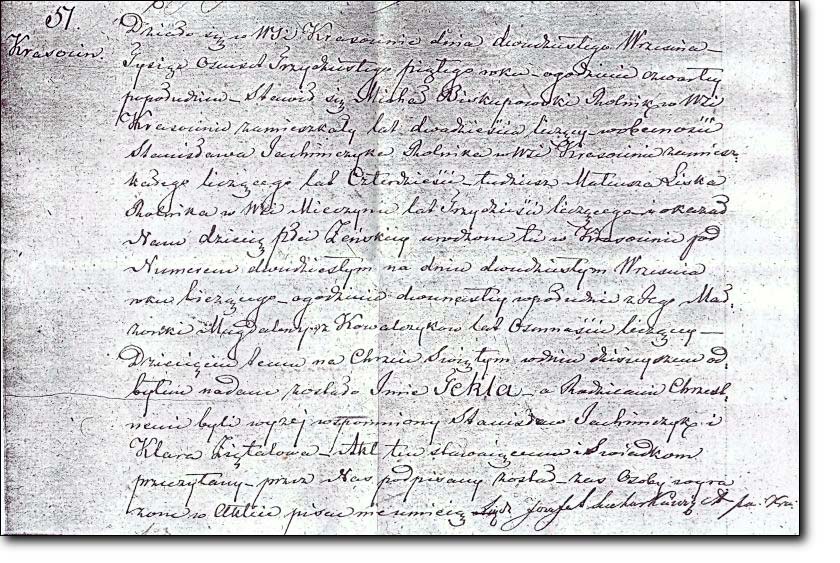 57.
Krasocin.
Działo się w Wsi Krasocinie dnia dwudziestego Wrzesnia
Tysiąc Osmset Trzydziestego piątego roku o godzinie czwartey
popołudniu Stawił się Michał Biskupowski Rolnik w Wsi
Krasocinie zamieszkały lat dwadzieścia liczący w obecności
Stanisława Jachimczyka Rolnika w Wsi Krasocinie zamiesz=
kałego liczącego lat Czterdzieści tudziesz Mateusza Liska
Rolnika w Wsi Mieczynie lat Trzydzieści liczącego i okazał
Nam dziecię płci Żeńskiey urodzone tu w Krasocinie pod
Numerem dwudziestym na dniu dwudziestym Wrzesnia
roku bieżącego o godzinie dwunastey w południe z Jego Mał=
żonki Magdaleny z Kowalczyków lat Osmnaście liczącey
Dziecięciu temu na Chrzcie Swiętym w dniu dzisieyszem od=
bytem nadane zostało Imie Tekla a Rodzicami Chrzest=
nemi byli wyżej wspomniony Stanisław Jachimczyk i
Klara Ziętalowa Akt ten stawaiącemu i Swiadkom
przeczytany przez Nas podpisany został zas Osoby wyra=
żone w Akcie pisac nie umieią Józef